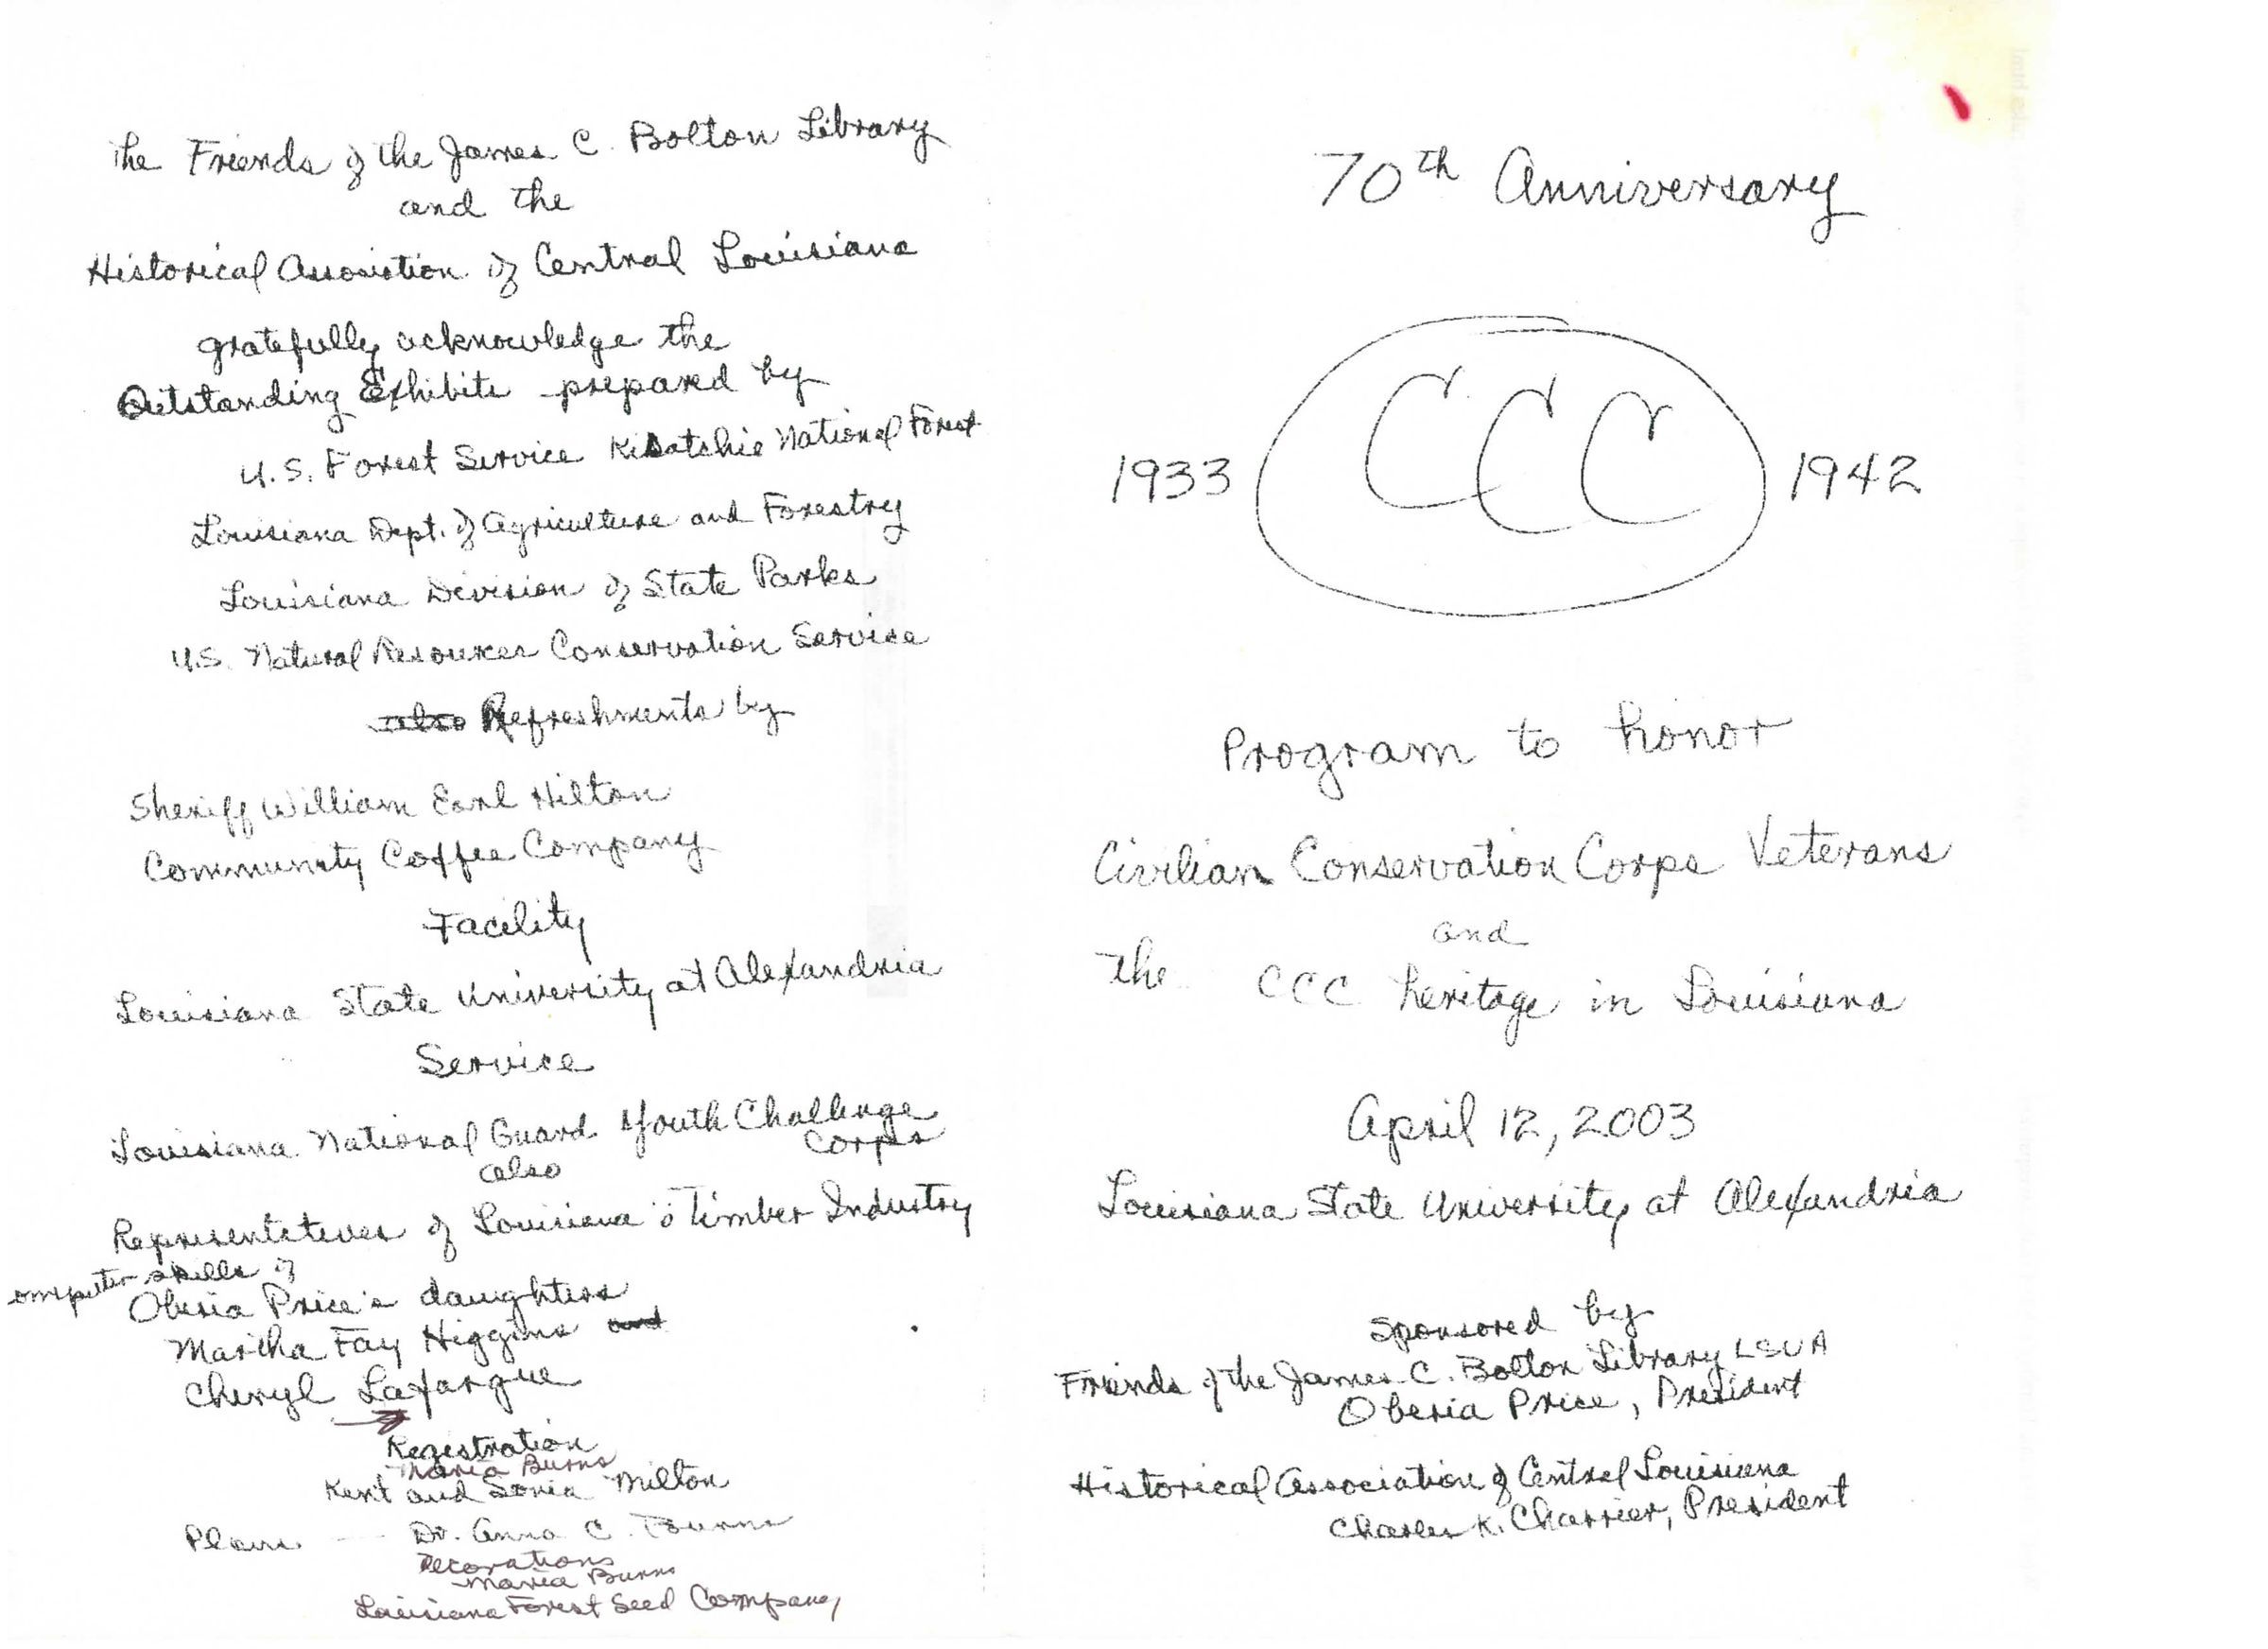 The Friends of the James C. Bolton Library
and the
Historical Association of Central Louisiana
gratefully acknowledge the
Outstanding Exhibits prepared by
U.S. Forest Service Kisatchie National Forest
Louisiana Dept. of Agriculture and Forestry
Louisiana Division of State Parks
U.S. Natural Resources Conservation Service
also Refreshments by
Sheriff William Earl Hilton
Community Coffee Company
Facility
Louisiana State University at Alexandria
Service
Louisiana National Guard Youth Challenge
Corps
also
Representatives of Louisiana's Timber Industry
omputer skills of
Oberia Price's daughters
Martha Fay Higgins and
Cheryl Lafargue
Registration
Maria Burns
Kent and Sonia Milton
Plans Dr. Anna C. Burns
Decorations
Maria Burns
Louisiana Forest Seed Company
70th Anniversary
1933 CCC 1942
Program to honor
Civilian Conservation Corps Veterans
and
the CCC heritage in Louisiana
April 12, 2003
Louisiana State University at Alexandria
Sponsored by
Friends of the James C. Bolton Library LSUA
Oberia Price, President
Historical Association of Central Louisiana
Charles K. Charrier, President